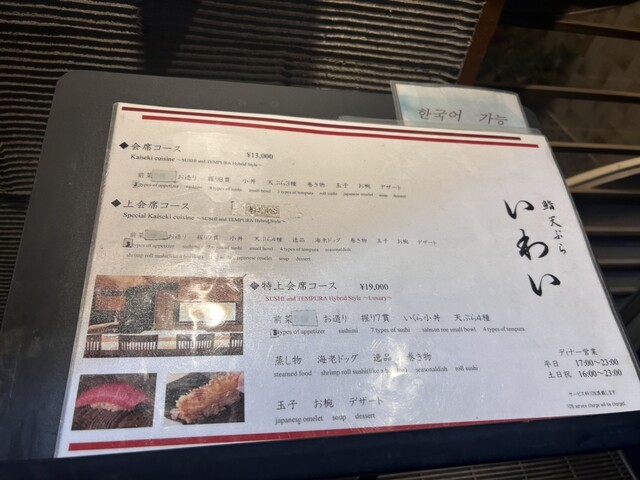 한국어 가능
◆会席コース ¥13,000
Kaiseki cuisine ~SUSHI and TEMPURA Hybrid Style~
前菜 お造り 握り6貫 小丼 天ぷら3種 巻き物 玉子 お椀 デザート
types of appetizer small bowl 3 types of tempura roll sushi japanese omelet soup dessert
◆上会席コース
Special Kaiseki cuisine ~SUSHI and TEMPURA Hybrid Style~
前菜 お造り 握り7貫 小丼 天ぷら4種 逸品 海老ドッグ 巻き物 玉子 お椀 デザート
types of appetizer sashimi small bowl 4 types of tempura
soup dessert
◆特上会席コース ¥19,000
SUSHI and TEMPURA Hybrid Style ~Luxury~
前菜 お造り 握り7貫 いくら小丼 天ぷら4種
types of appetizer sashimi 7 types of sushi salmon roe small bowl 4 types of tempura
蒸し物 海老ドッグ 逸品 巻き物
steamed food roll sushi
玉子 お椀 デザート
japanese omelet soup dessert
鮨 天ぷら
いわい
ディナー営業
平日 17:00〜23:00
土日祝 16:00〜23:00
サービス料10%を頂戴します
10% service charge will be charged.